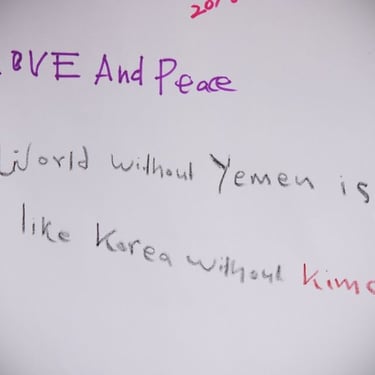 LOVE And Peace
World without Yemen is
like Korea without